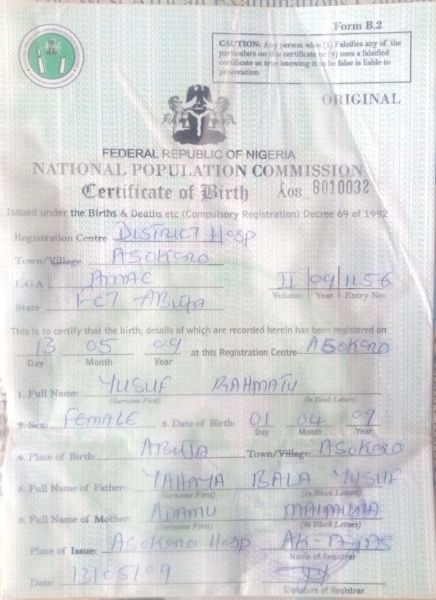 Form B.2
CAUTION: Any person who (1) Falsifies any of the
particulars on this certificate or (2) uses a falsified
certificate as true knowing it to be false is liable to
prosecution
ORIGINAL
FEDERAL REPUBLIC OF NIGERIA
NATIONAL POPULATION COMMISSION
Certificate of Birth A08 8010032
Issued under the Births & Deaths etc (Compulsory Registration) Decree 69 of 1992
Registration Centre DISTRICT Hosp
Town/Village ASOKORO
L.G.A AMAC II 09 1156
Volume Year Entry No:
State FCT ABUJA
This is to certify that the birth, details of which are recorded herein has been registered on
13 05 09 at this Registration Centre ASOKORO
Day Month Year
1. Full Name: YUSUF RAHMATU
(Surname First) (In Block Letters)
2. Sex: FEMALE 3. Date of Birth: 01 04 09
Day Month Year
4. Place of Birth: ABUJA Town/Village: ASOKORO
5. Full Name of Father: YAHAYA BALA YUSUF
(Surname First) (In Block Letters)
6. Full Name of Mother: ADAMU MAIMUNA
(Surname First) (In Block Letters)
Place of Issue: ASOKORO Hosp
Name of Registrar
Date: 13/05/09
Signature of Registrar